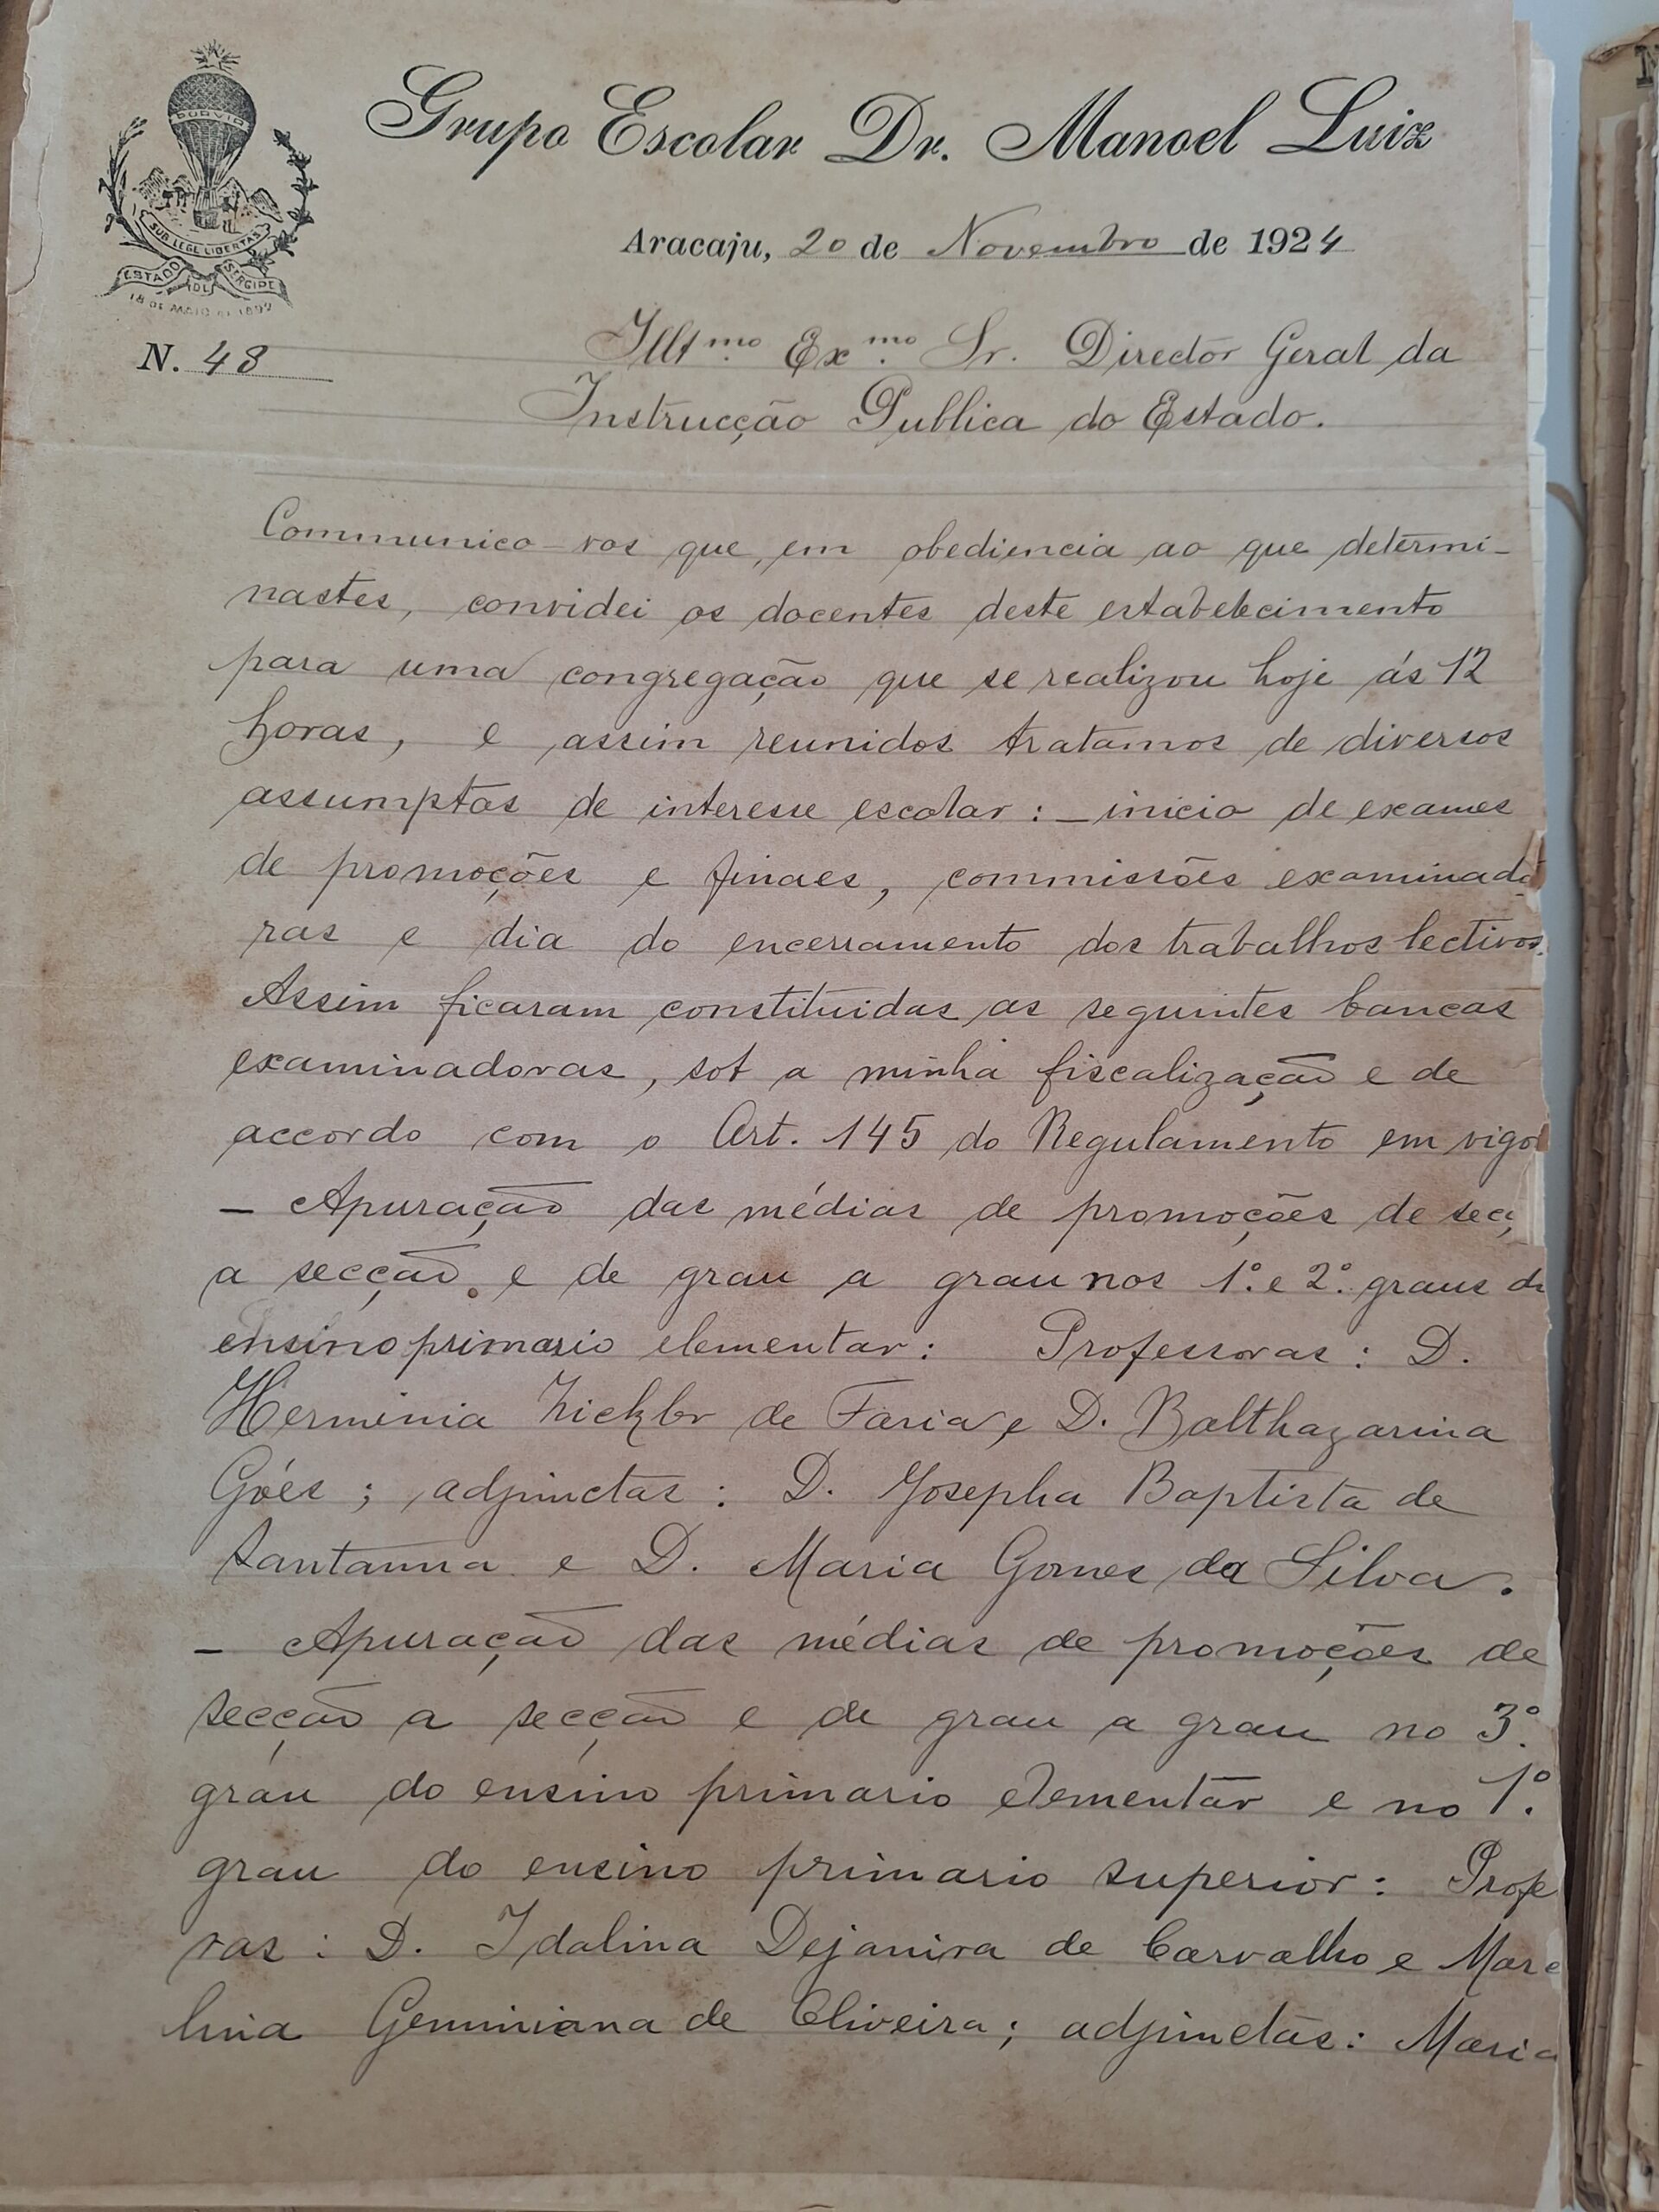 PORVIR
SUB LEGE LIBERTAS
ESTADO DE SERGIPE
18 DE MAIO DE 1892
Grupo Escolar Dr. Manoel Luiz
Aracaju, 20 de Novembro de 1924
N. 48
Illt.mo Ex.mo Sr. Director Geral da
Instrucção Publica do Estado.
Communico-vos que, em obediencia ao que determi-
nastes, convidei os docentes deste estabelecimento
para uma congregação que se realizou hoje ás 12
horas, e assim reunidos tratamos de diversos
assumptos de interesse escolar: - inicio de exames
de promoções e finaes, commissões examinado
ras e dia do encerramento dos trabalhos lectivos.
Assim ficaram constituidas as seguintes bancas
examinadoras, sob a minha fiscalização e de
accordo com o Art. 145 do Regulamento em vigor
- Apuração das médias de promoções de secç
a secção e de grau a grau nos 1º. e 2º. graus do
ensino primario elementar: Professoras: D.
Herminia de Faria e D. Balthazarina
Góes; adjunctas: D. Josepha Baptista de
Santanna e D. Maria Gomes da Silva.
- Apuração das médias de promoções de
secção a secção e de grau a grau no 3º.
grau do ensino primario elementar e no 1º.
grau do ensino primario superior: Profe
ras: D. Idalina Dejanira de Carvalho e Marc
lina Geminiana de Oliveira; adjunctas: Maria